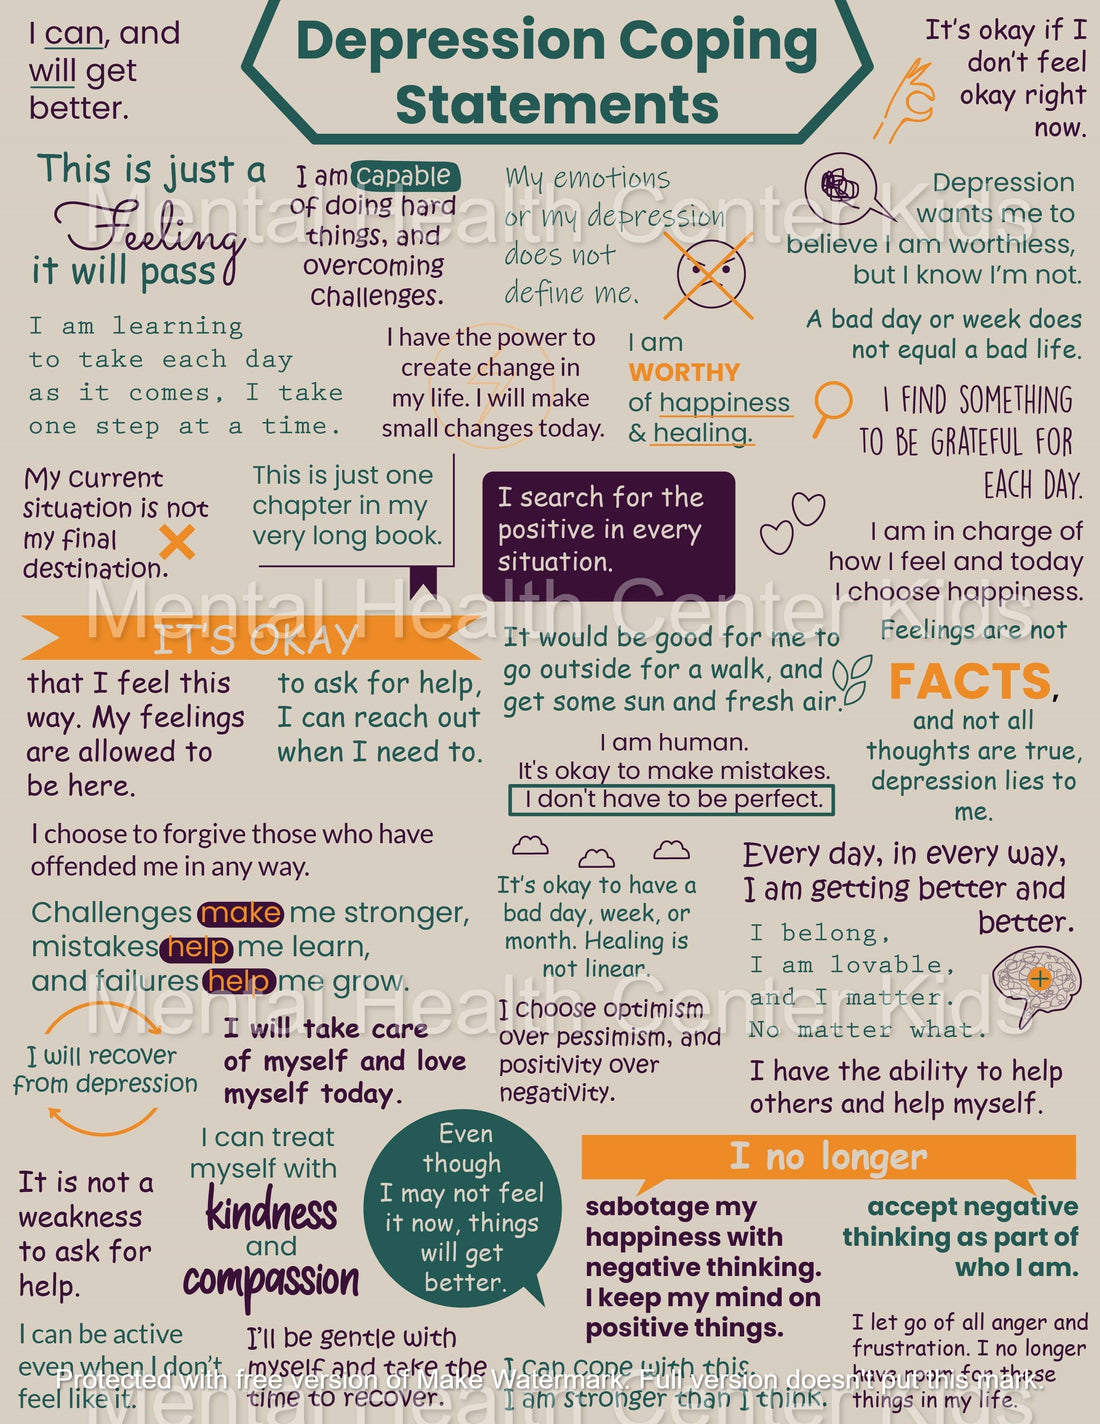 Depression Coping
Statements
I can, and
will get
better.
It's okay if I
don't feel
okay right
now.
This is just a
Feeling
it will pass
I am capable
of doing hard
things, and
overcoming
challenges.
My emotions
or my depression
does not
define me.
Depression
wants me to
believe I am worthless,
but I know I'm not.
Mental Health Center Kids
I am learning
to take each day
as it comes, I take
one step at a time.
I have the power to
create change in
my life. I will make
small changes today.
I am
WORTHY
of happiness
& healing.
A bad day or week does
not equal a bad life.
I FIND SOMETHING
TO BE GRATEFUL FOR
EACH DAY.
My current
situation is not
my final
destination.
This is just one
chapter in my
very long book.
I search for the
positive in every
situation.
I am in charge of
how I feel and today
I choose happiness.
Mental Health Center Kids
IT'S OKAY
that I feel this
way. My feelings
are allowed to
be here.
to ask for help,
I can reach out
when I need to.
It would be good for me to
go outside for a walk, and
get some sun and fresh air.
Feelings are not
FACTS,
and not all
thoughts are true,
depression lies to
me.
I am human.
It's okay to make mistakes.
I don't have to be perfect.
I choose to forgive those who have
offended me in any way.
Challenges make me stronger,
mistakes help me learn,
and failures help me grow.
It's okay to have a
bad day, week, or
month. Healing is
not linear.
Every day, in every way,
I am getting better and
better.
I belong,
I am lovable,
and I matter.
No matter what.
Mental Health Center Kids
I will recover
from depression
I will take care
of myself and love
myself today.
I choose optimism
over pessimism, and
positivity over
negativity.
I have the ability to help
others and help myself.
It is not a
weakness
to ask for
help.
I can treat
myself with
kindness
and
compassion
Even
though
I may not feel
it now, things
will get
better.
I no longer
sabotage my
happiness with
negative thinking.
I keep my mind on
positive things.
accept negative
thinking as part of
who I am.
I can be active
even when I don't
feel like it.
I'll be gentle with
myself and take the
time to recover.
I can cope with this.
I am stronger than I think.
I let go of all anger and
frustration. I no longer
have room for these
things in my life.
Protected with free version of Make Watermark. Full version doesn't put this mark.
Mental Health Center Kids